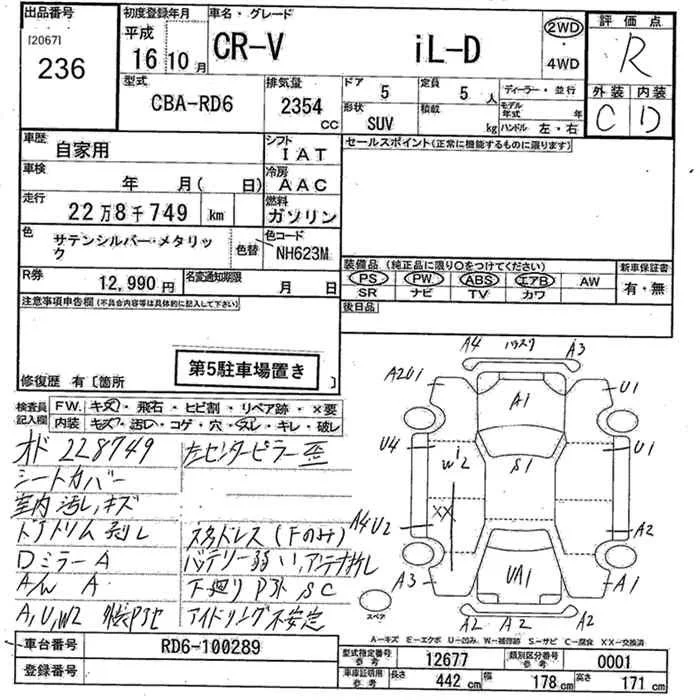 出品番号
[2067]
236
初度登録年月
平成
16 10月
車名・グレード
CR-V iL-D
2WD
・
4WD
評価点
R
外装 内装
C D
型式
CBA-RD6
排気量
2354
cc
ドア
5
定員
5 人
形状
SUV
積載
kg
ディーラー・並行
モデル年式 年
ハンドル 左・右
車歴
自家用
シフト
IAT
車検
年 月( 日)
冷房
AAC
走行
22万8千749 km
燃料
ガソリン
色
サテンシルバー・メタリック
色替
色コード
NH623M
R券
12,990円
名変通知期限
月 日
セールスポイント(正常に機能するものに限ります)
装備品(純正品に限り○をつけてください)
PS PW ABS エアB AW
SR ナビ TV カワ
新車保証書
有・無
後日品
注意事項申告欄(不具合内容等は具体的に記入して下さい)
第5駐車場置き
修復歴 有〔箇所 〕
検査員記入欄
FW. キズ・飛石・ヒビ割・リペア跡・×要
内装 キズ・汚れ・コゲ・穴・スレ・キレ・破レ
オド 228749
左センターピラー歪
シートカバー
室内汚れ、キズ
ドアトリム剥レ
スタドレス(Fのみ)
DミラーA
バッテリー弱い、アンテナ折レ
A/n A
下廻り P外 SC
A,U,W2 外装P立セ
アイドリング不安定
A4 A3
A2U1 A1 U1
U4 W2 S1 U1
XX
A4U2 A2
A3 UA1 A1
A2 A2 A2
スペア
A-キズ E-エクボ U-凹み W-補修跡 S-サビ C-腐食 XX-交換済
車台番号
RD6-100289
登録番号
型式指定番号
参考
12677
類別区分番号
参考
0001
車庫証明用
参考
長さ 442 cm 幅 178 cm 高さ 171 cm